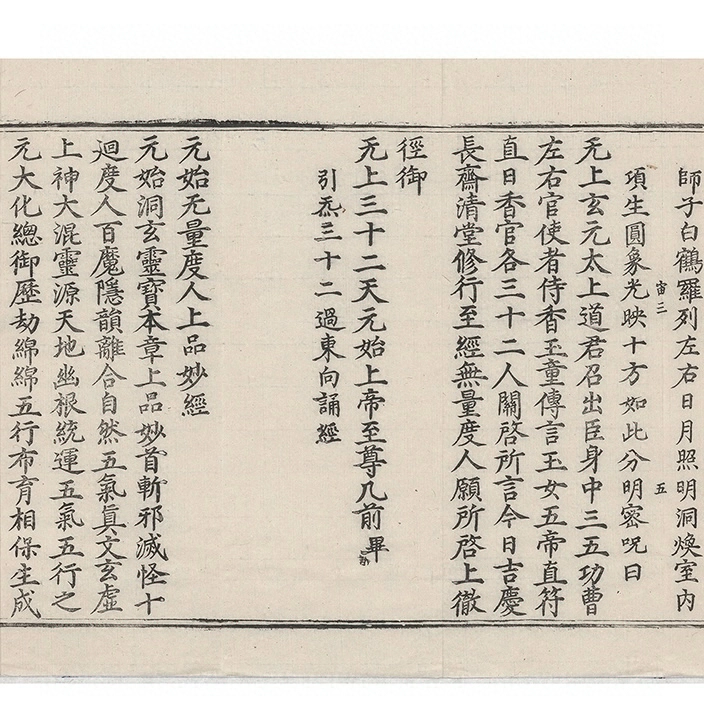 師子白鶴羅列左右日月照明洞煥室内
項生圓象光映十方如此分明密呪曰
宙三
五
无上玄元太上道君召出臣身中三五功曹
左右官使者侍香玉童傳言玉女五帝直符
直日香官各三十二人關啓所言今日吉慶
長齋清堂修行至經無量度人願所啓上徹
徑御
无上三十二天元始上帝至尊几前畢
引炁三十二過東向誦經
元始无量度人上品妙經
元始洞玄靈寶本章上品妙首斬邪滅怪十
迴度人百魔隱韻離合自然五氣真文玄虛
上神大混靈源天地幽根統運五氣五行之
元大化總御歷劫綿綿五行布育相保生成